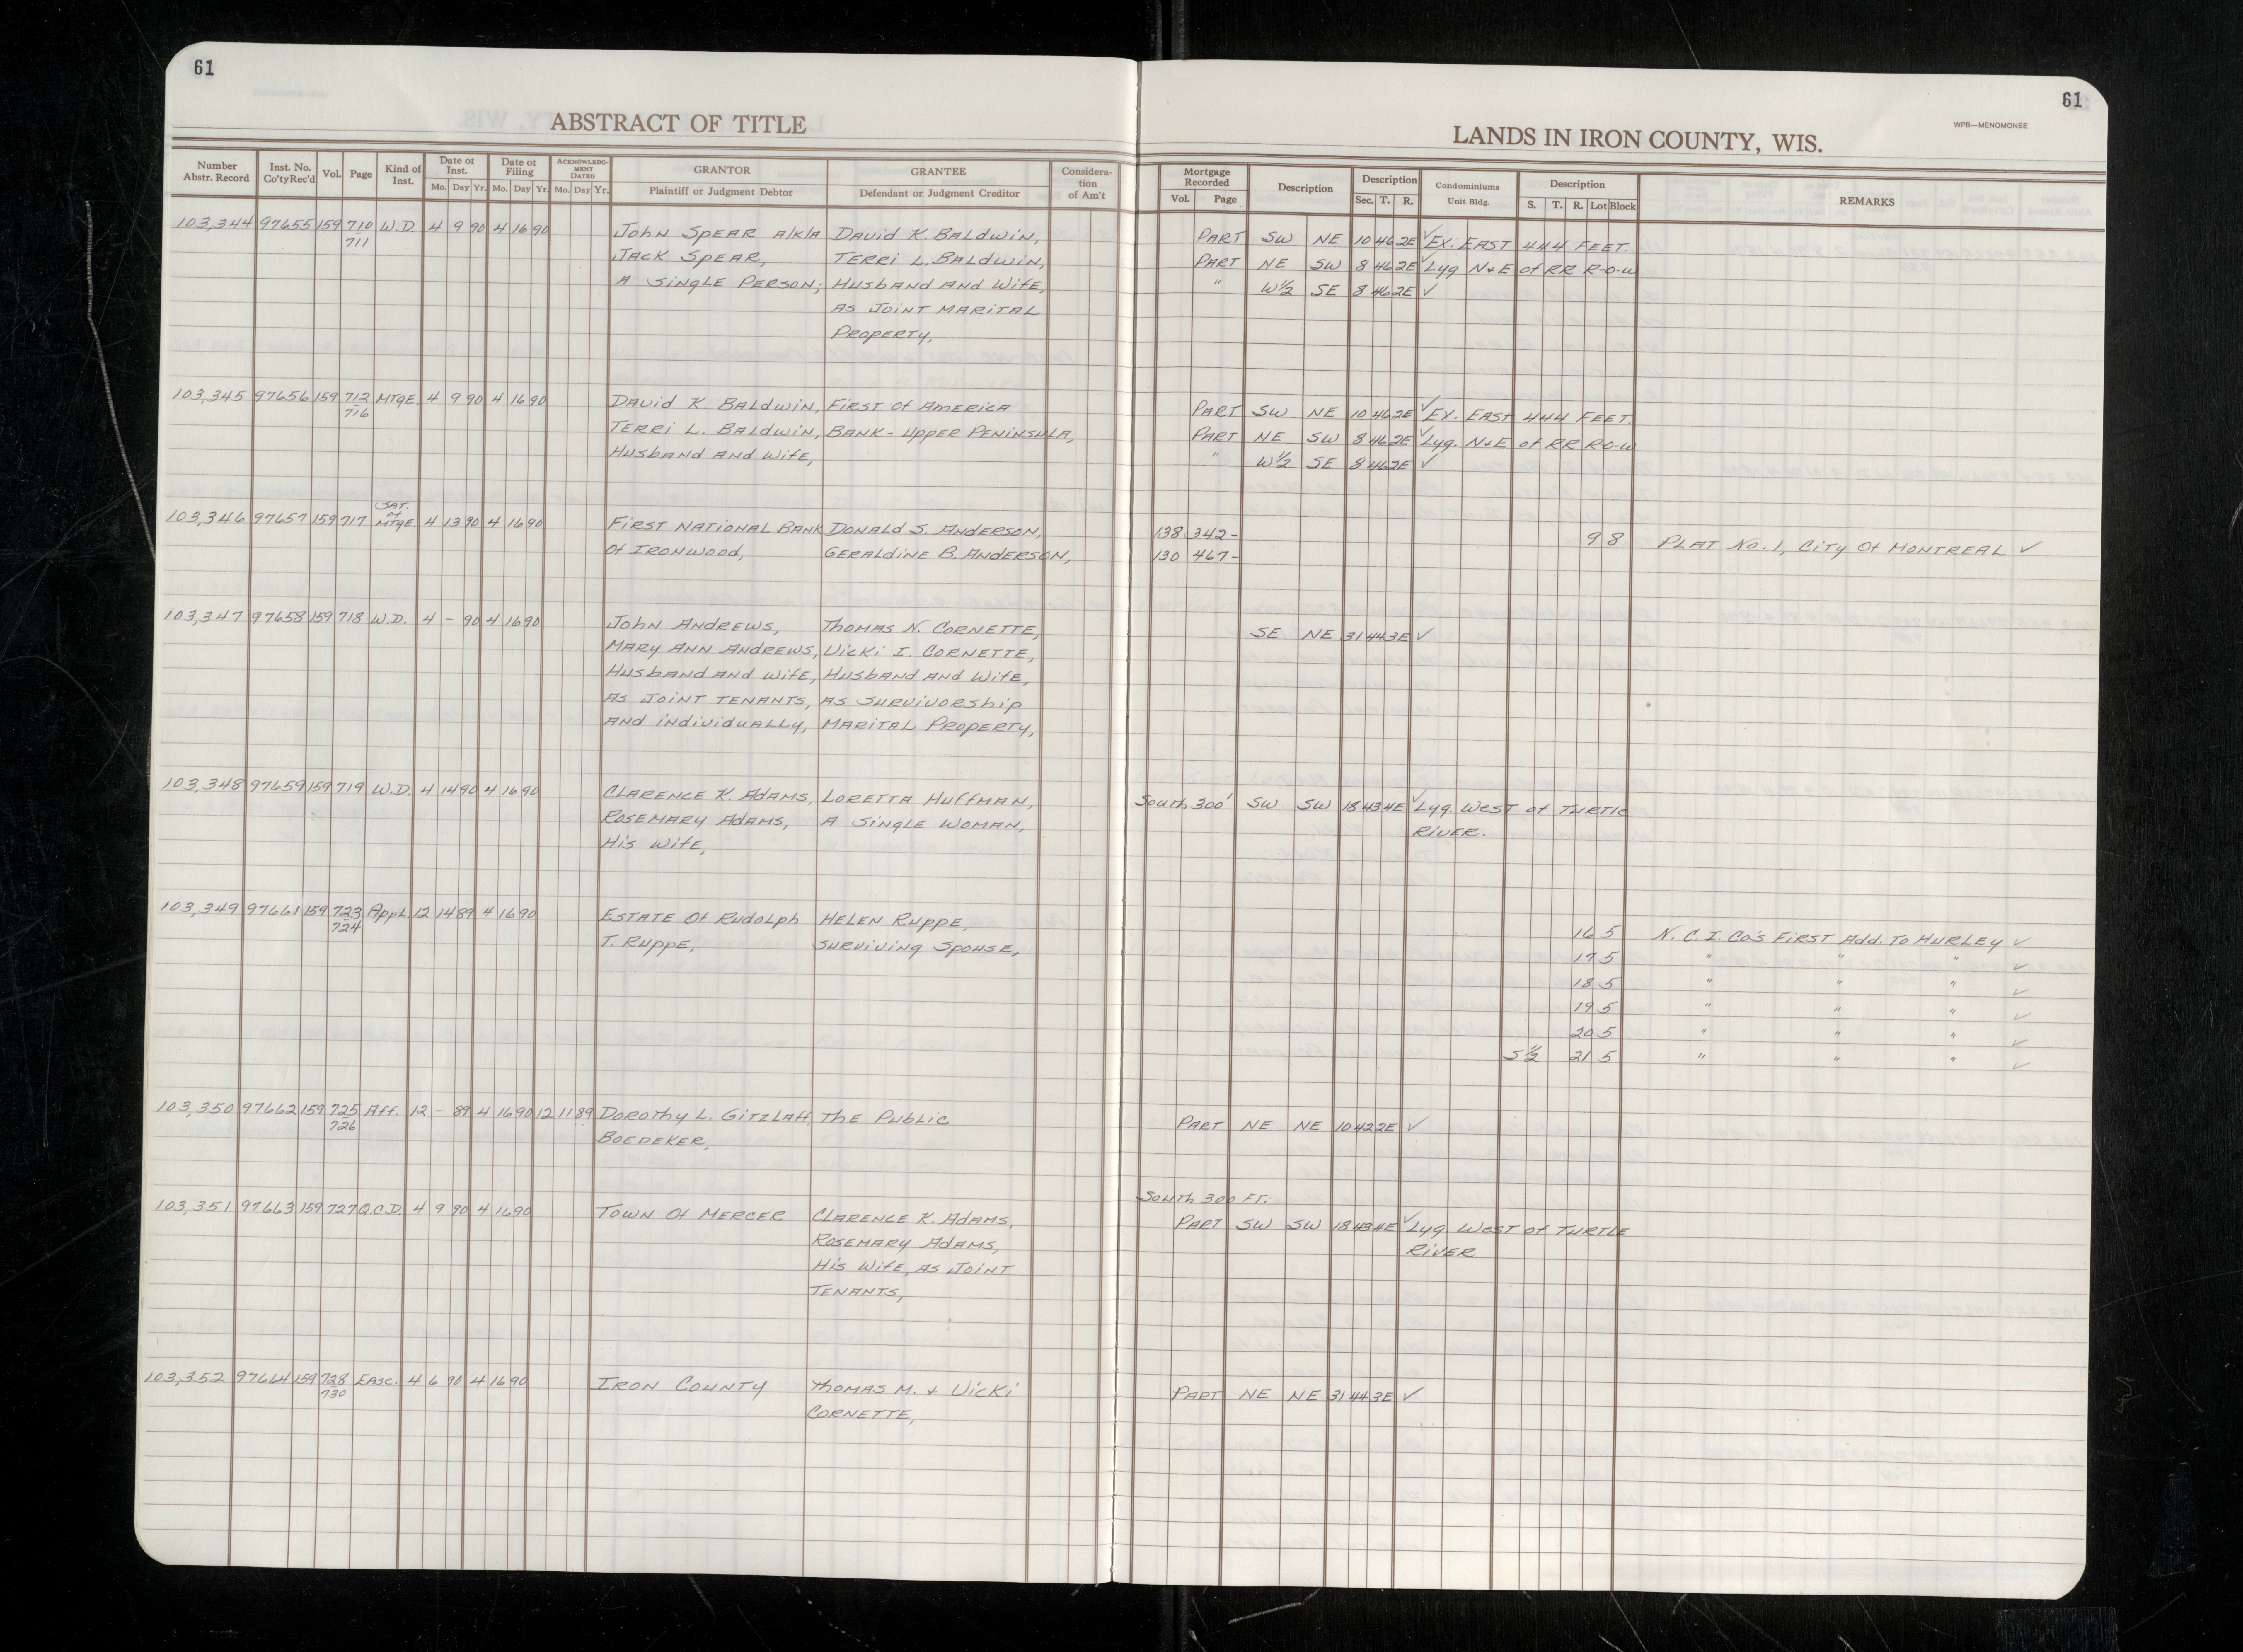 61
61
ABSTRACT OF TITLE
LANDS IN IRON COUNTY, WIS.
WPB—MENOMONEE
Number Abstr. Record
Inst. No. Co'ty Rec'd
Vol.
Page
Kind of Inst.
Date of Inst.
Mo. Day Yr.
Date of Filing
Mo. Day Yr.
ACKNOWLEDGMENT DATED
Mo. Day Yr.
GRANTOR
Plaintiff or Judgment Debtor
GRANTEE
Defendant or Judgment Creditor
Consideration of Am't
Mortgage Recorded
Vol. Page
Description
Description
Sec. T. R.
Condominiums
Unit Bldg.
Description
S. T. R. Lot Block
REMARKS
103,344 97655 159 710 W.D. 4 9 90 4 16 90 John Spear a/k/a David K. Baldwin, Part SW NE 10 46 2E ✓ Ex. East 444 Feet.
711 Jack Spear, Terri L. Baldwin, Part NE SW 8 46 2E ✓ Lyg N+E of RR R-O-W
A Single Person; Husband and Wife, " W½ SE 8 46 2E ✓
as Joint Marital
Property,
103,345 97656 159 712 Mtge. 4 9 90 4 16 90 David K. Baldwin, First of America Part SW NE 10 46 2E ✓ Ex. East 444 Feet.
716 Terri L. Baldwin, Bank-Upper Peninsula, Part NE SW 8 46 2E ✓ Lyg. N+E of RR R-O-W
Husband and Wife, " W½ SE 8 46 2E ✓
Sat.
of
103,346 97657 159 717 Mtge. 4 13 90 4 16 90 First National Bank Donald S. Anderson, 138 342- 9 8 Plat No. 1, City of Montreal ✓
of Ironwood, Geraldine B. Anderson, 130 467-
103,347 97658 159 718 W.D. 4 - 90 4 16 90 John Andrews, Thomas N. Cornette, SE NE 31 44 3E ✓
Mary Ann Andrews, Vicki I. Cornette,
Husband and Wife, Husband and Wife,
as Joint Tenants, as Survivorship
and individually, Marital Property,
103,348 97659 159 719 W.D. 4 14 90 4 16 90 Clarence K. Adams, Loretta Huffman, South 300' SW SW 18 43 4E ✓ Lyg. West of Turtle
Rosemary Adams, A Single Woman, River.
His Wife,
103,349 97661 159 723 Appl. 12 14 89 4 16 90 Estate of Rudolph Helen Ruppe, 16 5 N.C.I. Co's First Add. to Hurley ✓
724 T. Ruppe, Surviving Spouse, 17 5 " " " ✓
18 5 " " " ✓
19 5 " " " ✓
20 5 " " " ✓
S½ 21 5 " " " ✓
103,350 97662 159 725 Aff. 12 - 89 4 16 90 12 11 89 Dorothy L. Gitzlaff The Public Part NE NE 10 42 2E ✓
726 Boedeker,
South 300 Ft.
103,351 97663 159 727 Q.C.D. 4 9 90 4 16 90 Town of Mercer Clarence K. Adams, Part SW SW 18 43 4E ✓ Lyg West of Turtle
Rosemary Adams, River
His Wife, as Joint
Tenants,
103,352 97664 159 728 Ease. 4 6 90 4 16 90 Iron County Thomas M. + Vicki Part NE NE 31 44 3E ✓
730 Cornette,